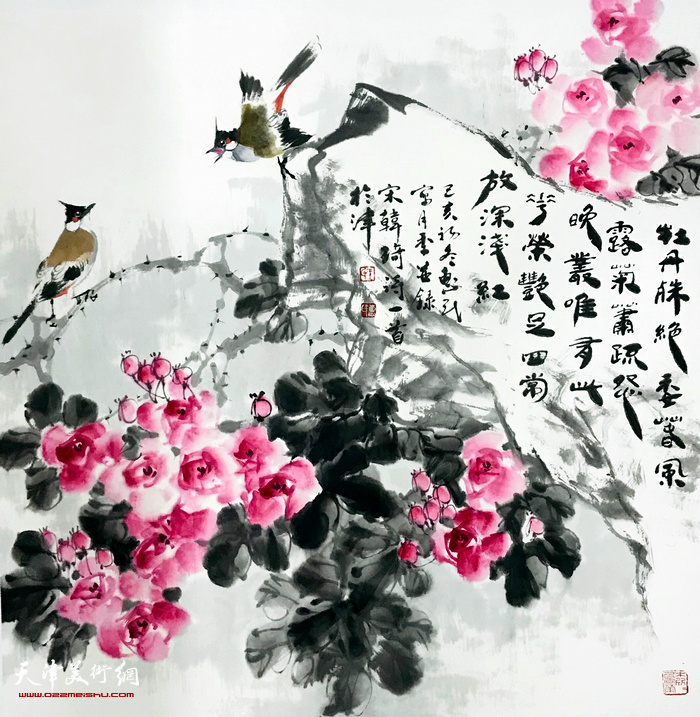 牡丹殊絕委春風
露菊蕭疏怨
晚叢唯有此
花榮艷足四常
放深淺紅
己亥初冬
寫月季並錄
宋韓琦詩一首
於津
天津美術網
www.022meishu.com